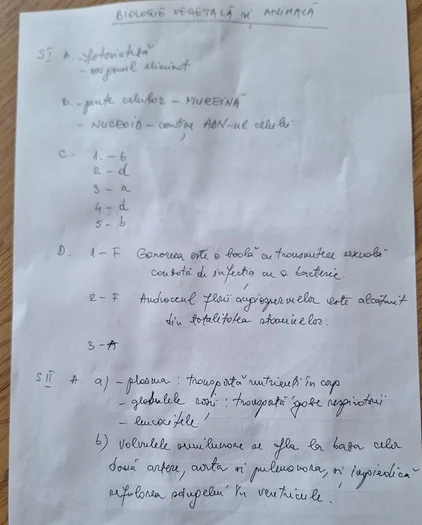 BIOLOGIE VEGETALĂ ȘI ANIMALĂ
SI A. - fotosinteză
- oxigenul eliminat
B. - perete celular - MUREINĂ
- NUCEOID - conține ADN-ul celulei
C. 1. - b
2 - d
3 - a
4 - d
5 - b
D. 1 - F Gonoreea este o boală cu transmitere sexuală
cauzată de infecția cu o bacterie.
2 - F Androceul florii angiospermelor este alcătuit
din totalitatea staminelor.
3 - A
SII A. a) - plasma : transportă nutrienți în corp
- globulele roșii : transportă gaze respiratorii
- leucocitele
b) Valvulele semilunare se află la baza celor
două artere, aorta și pulmonara, și împiedică
refularea sângelui în ventricule.